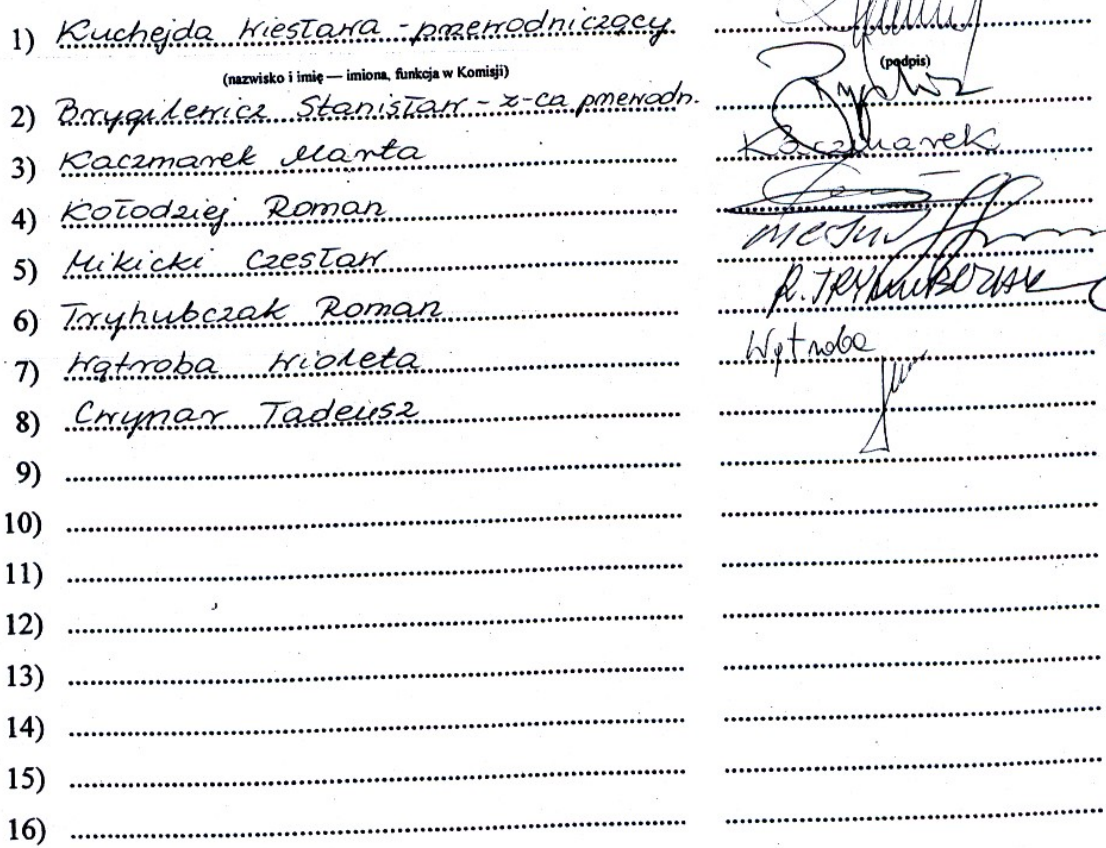 1) Kuchejda Wiesława - przewodniczący
(nazwisko i imię — imiona, funkcja w Komisji) (podpis)
2) Brygilewicz Stanisław - z-ca przewodn.
3) Kaczmarek Marta Kaczmarek
4) Kołodziej Roman
5) Mikicki Czesław
6) Tryhubczak Roman
7) Wątroba Wioleta Wątroba
8) Cwynar Tadeusz
9)
10)
11)
12)
13)
14)
15)
16)